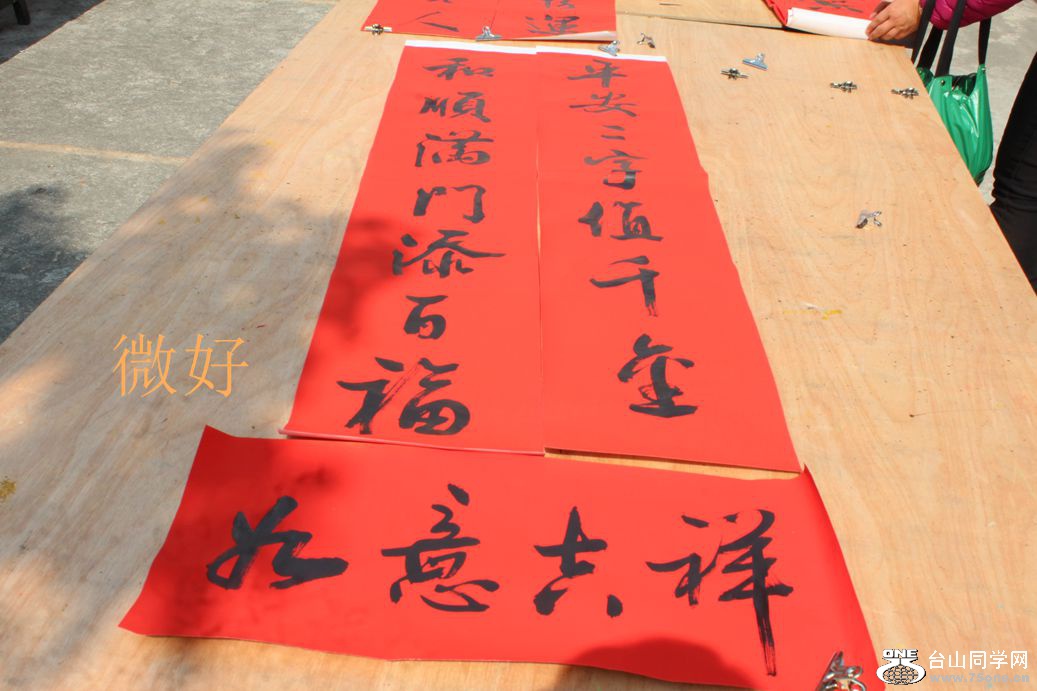 平安二字值千金
和順满门添百福
如意吉祥
微好
ONE
台山同学网